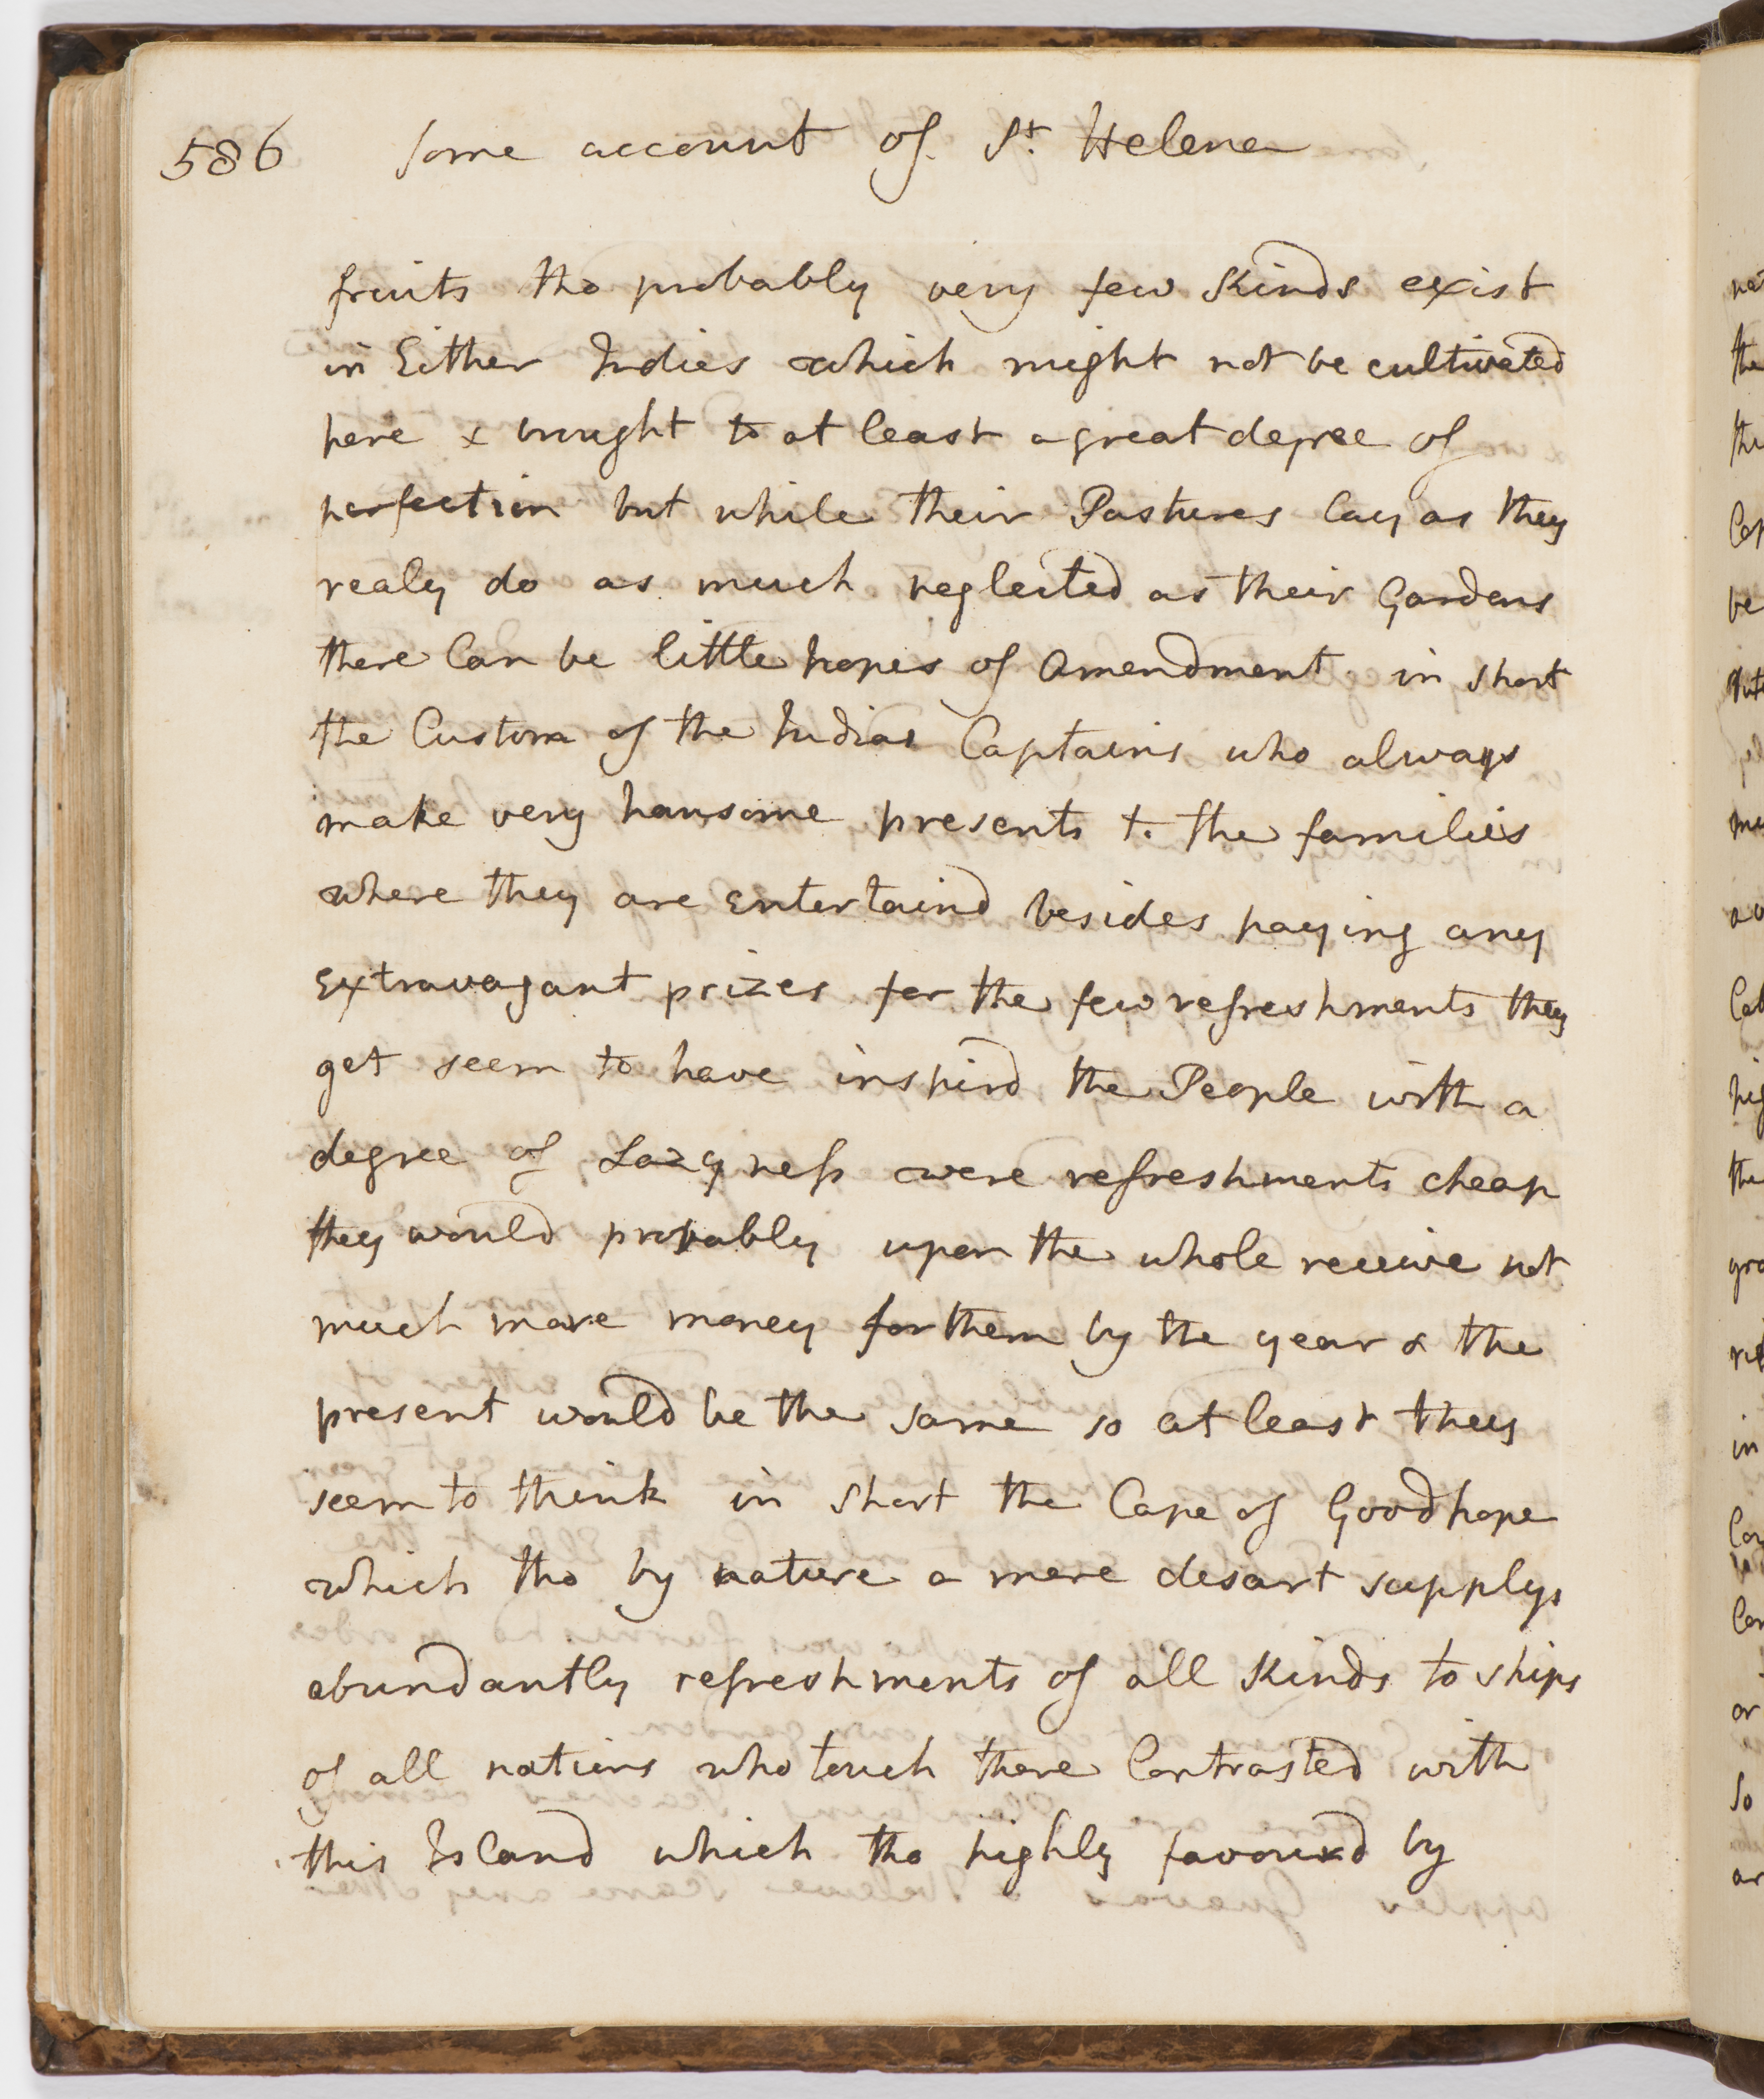 586 Some account of St. Helena
fruits tho probably very few kinds exist
in Either Indies which might not be cultivated
here & brought to at least a great degree of
perfection but while their Pastures lay as they
realy do as much neglected as their Gardens
there Can be little hopes of Amendment in short
the Custom of the Indian Captains who always
make very hansome presents to the families
where they are Entertaind besides paying any
Extravagant prizes for the few refreshments they
get seem to have inspird the People with a
degree of Lazyness were refreshments cheap
they would probably upon the whole receive not
much more money for them by the year & the
present would be the same so at least they
seem to think in short the Cape of Good hope
which tho by nature a mere desart supplys
abundantly refreshments of all kinds to ships
of all nations who touch there Contrasted with
this Island which tho highly favourd by